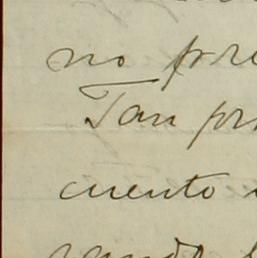 no pre
Tan pr
cuento